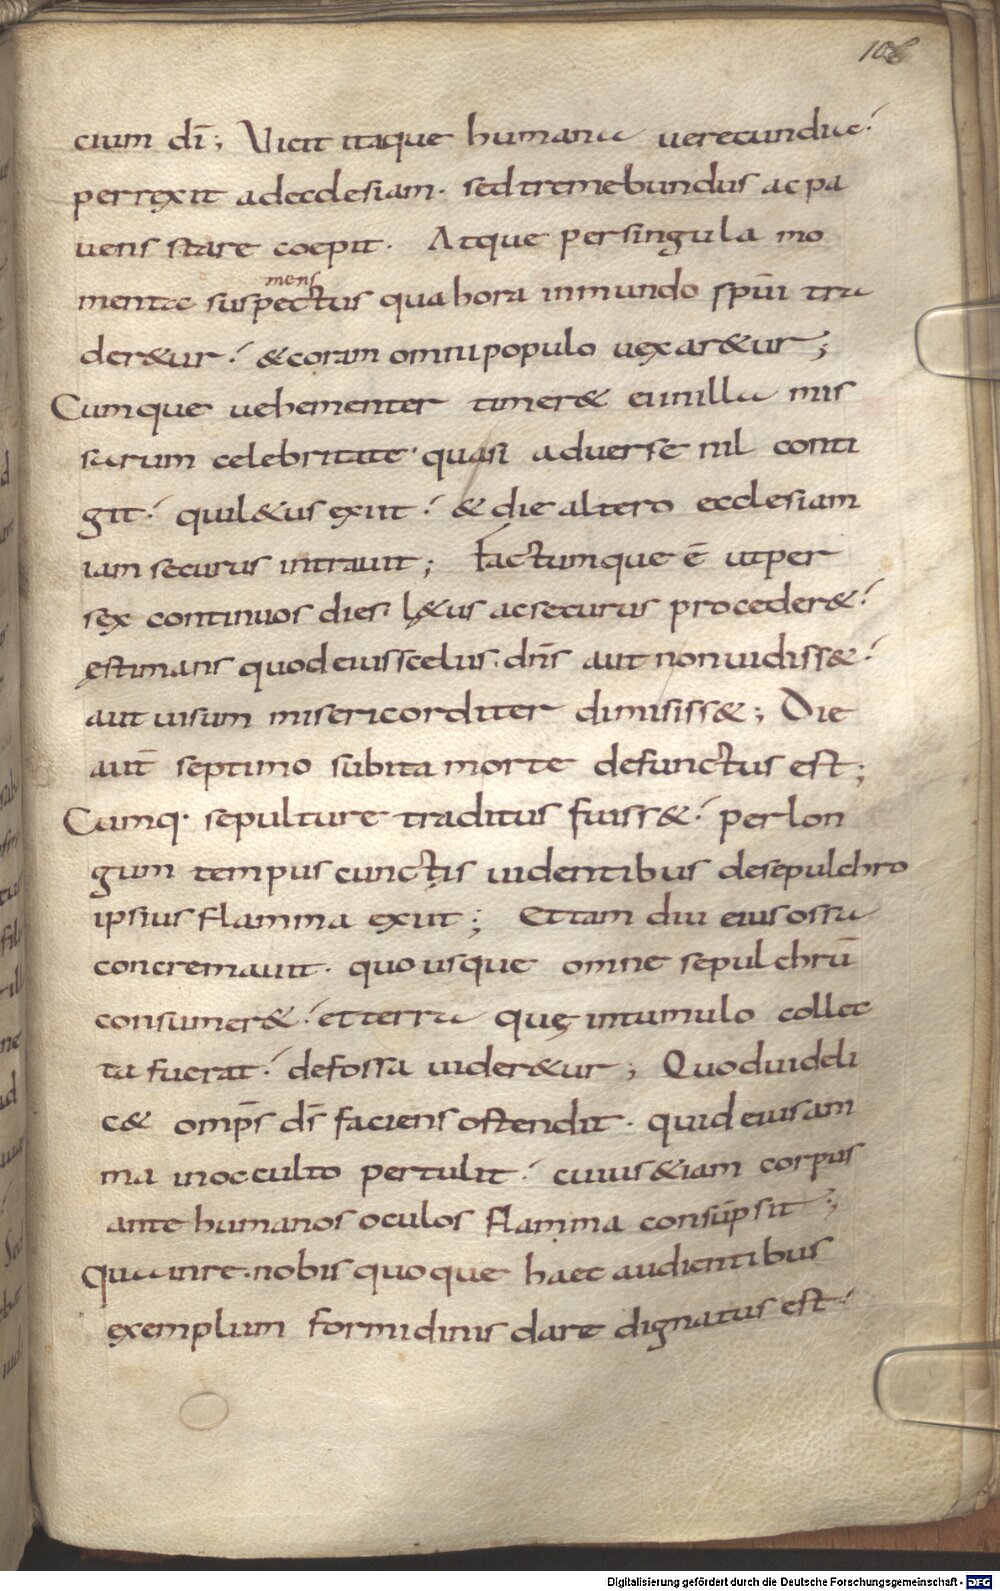 108
cium dī; Vicit itaque humana uerecundia.
perrexit adecclesiam. sed tremebundus ac pa
uens stare coepit. Atque per singula mo
mens
menta suspectus qua hora inmundo spūi tra
der&ur. & coram omni populo uexar&ur;
Cumque uehementer timer& ei in illa mis
sarum celebritate quasi aduerse nil conti
git. qui l&us exiit. & die altero ecclesiam
iam securus intrauit; Factumque ē ut per
sex continuos dies l&us ac securus proceder&.
ęstimans quod eius scelus dn̄s aut non uidiss&.
aut uisum misericorditer dimisiss&; Die
aut̄ septimo subita morte defunctus est;
Cumq. sepulture traditus fuiss&. per lon
gum tempus cunctis uidentibus de sepulchro
ipsius flamma exiit; Et tam diu eius ossa
concremauit. quo usque omne sepulchrū
consumer&. et terra quę in tumulo collec
ta fuerat. defossa uider&ur; Quod uideli
c& omp̄s ds̄ faciens ostendit. quid eius ani
ma in occulto pertulit. cuius &iam corpus
ante humanos oculos flamma consūpsit;
Qua in re. nobis quoque haec audientibus
exemplum formidinis dare dignatus est.
Digitalisierung gefördert durch die Deutsche Forschungsgemeinschaft - DFG